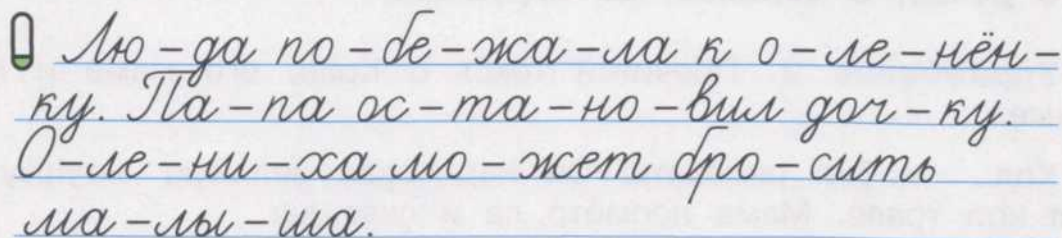 Лю-да по-бе-жа-ла к о-ле-нён-
ку. Па-па ос-та-но-вил доч-ку.
О-ле-ни-ха мо-жет бро-сить
ма-лы-ша.